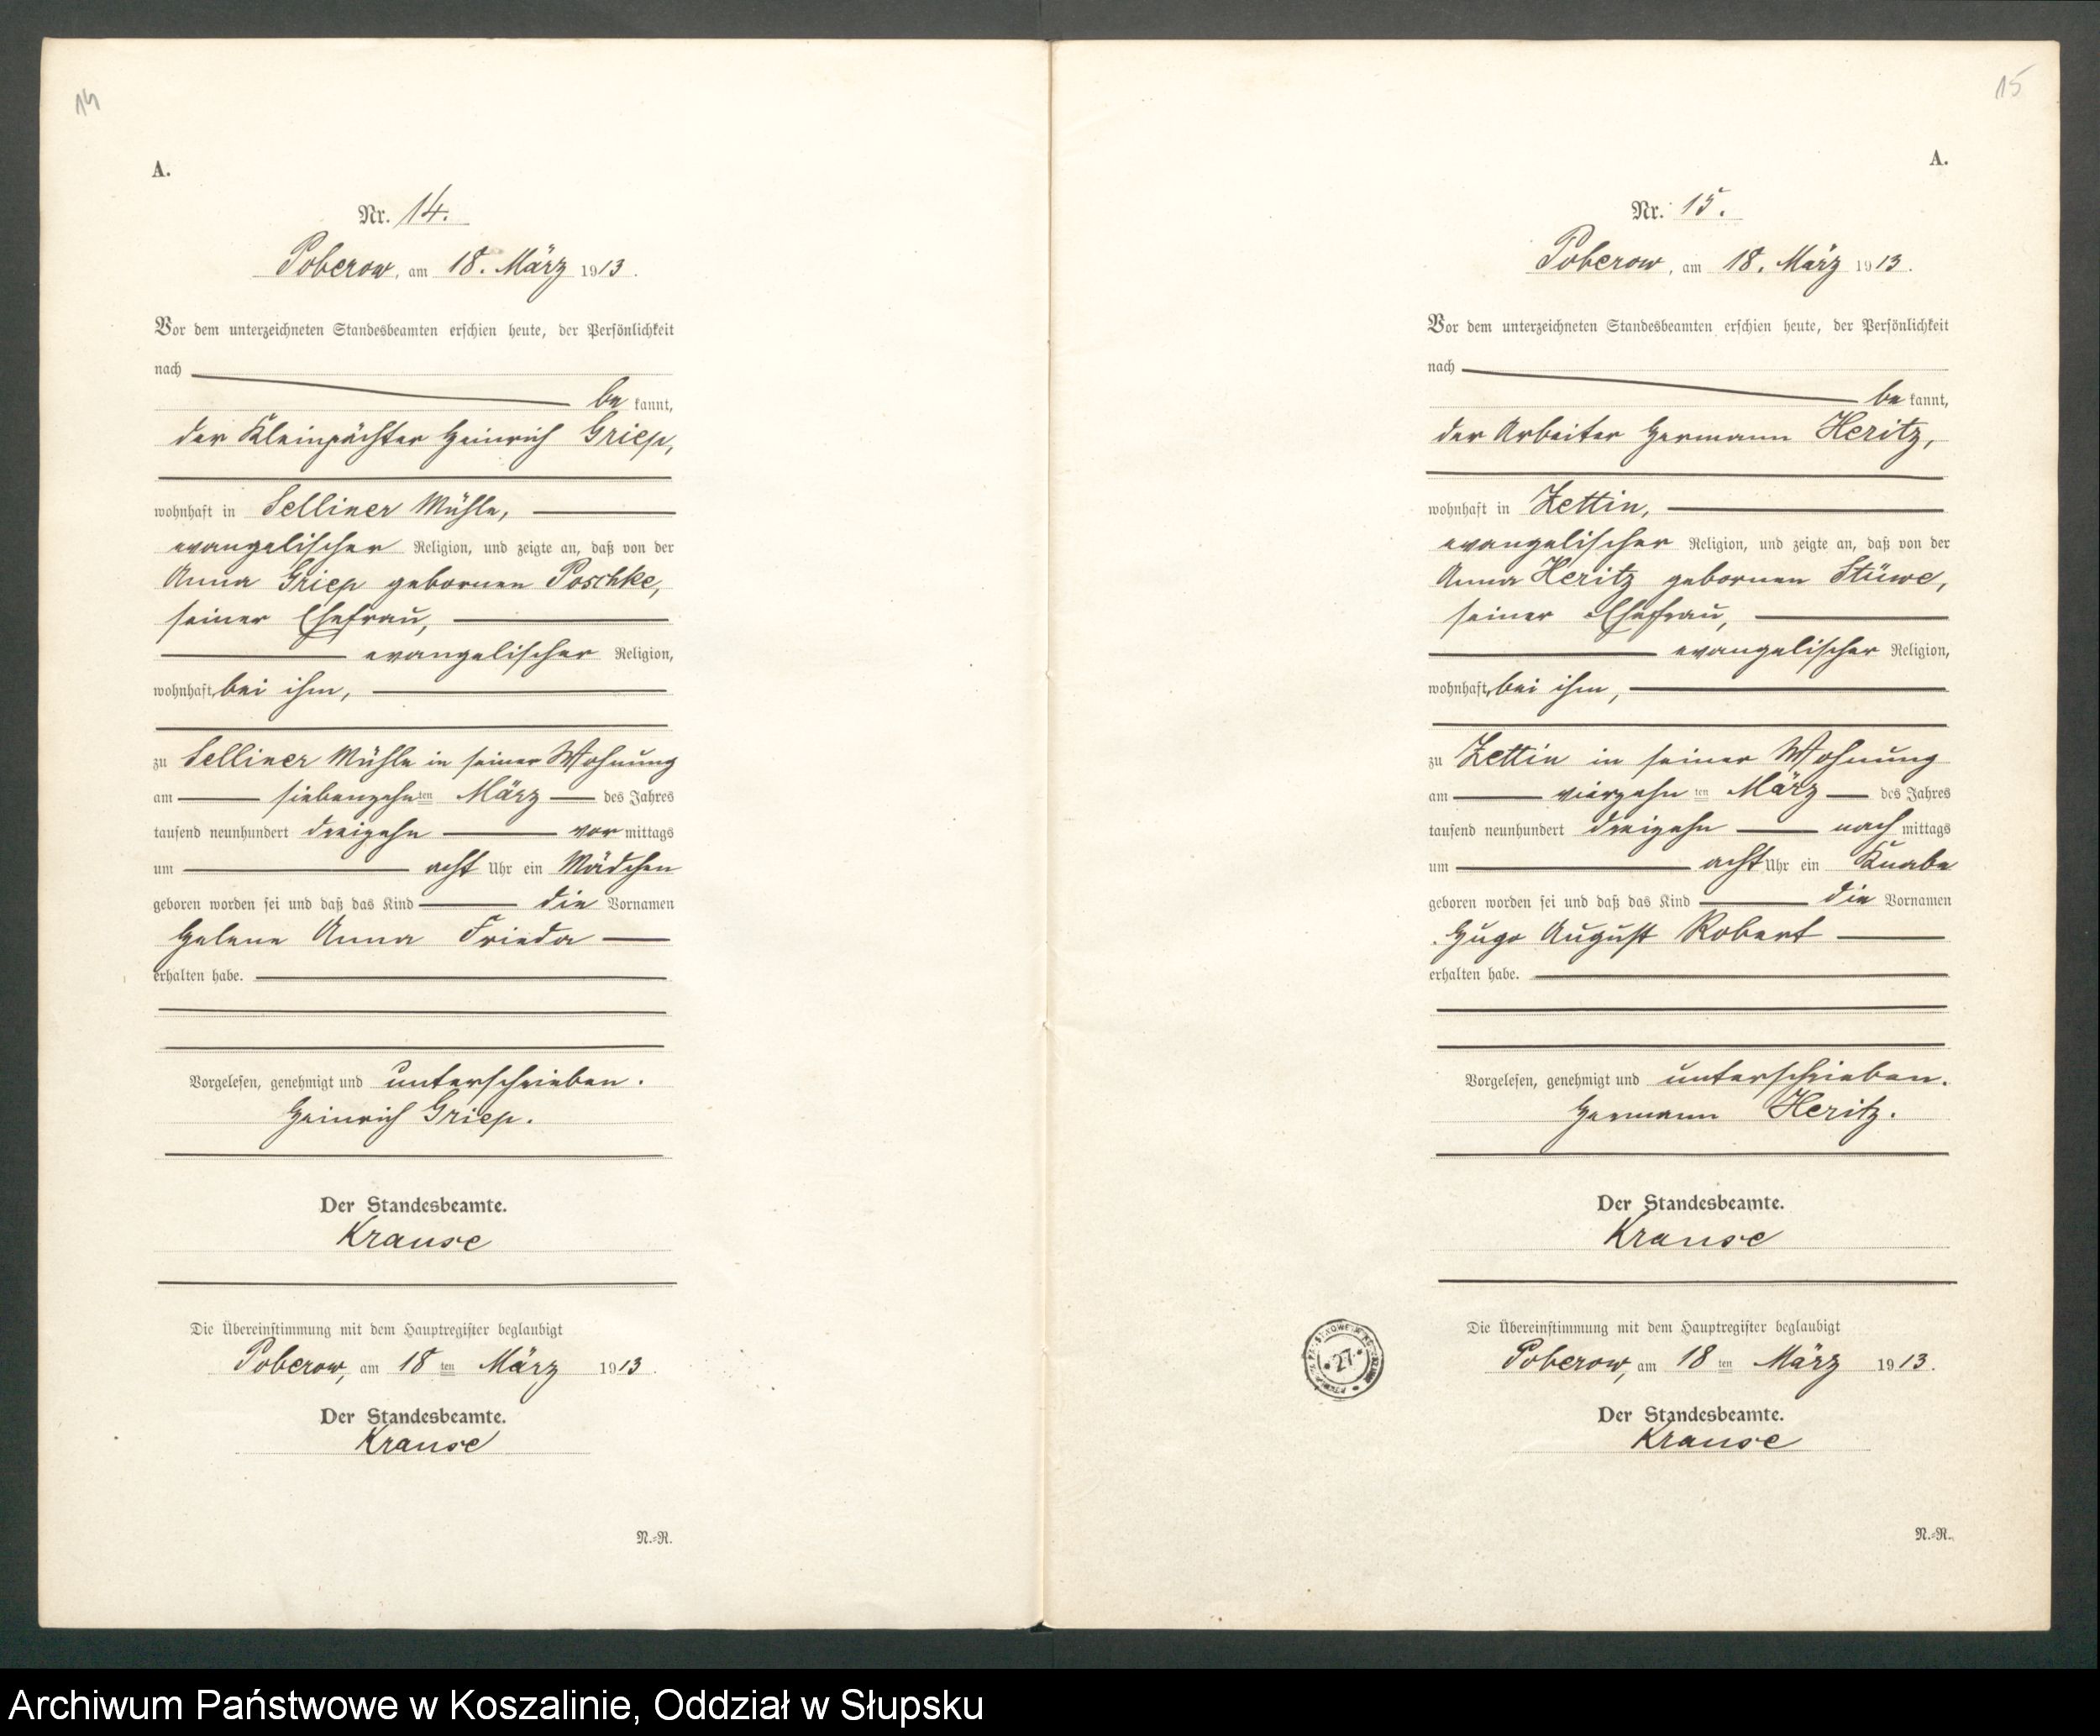 14
A.
Nr. 14.
Poberow, am 18. März 1913.
Vor dem unterzeichneten Standesbeamten erschien heute, der Persönlichkeit
nach
be kannt,
der Kleinpächter Heinrich Griep,
wohnhaft in Selliner Mühle,
evangelischer Religion, und zeigte an, daß von der
Anna Griep gebornen Poschke,
seiner Ehefrau,
evangelischer Religion,
wohnhaft bei ihm,
zu Selliner Mühle in seiner Wohnung
am siebenzehnten März des Jahres
tausend neunhundert dreizehn vor mittags
um acht Uhr ein Mädchen
geboren worden sei und daß das Kind die Vornamen
Helene Anna Frieda
erhalten habe.
Vorgelesen, genehmigt und unterschrieben.
Heinrich Griep.
Der Standesbeamte.
Krause
Die Übereinstimmung mit dem Hauptregister beglaubigt
Poberow, am 18 ten März 1913.
Der Standesbeamte.
Krause
N.-R.
15
A.
Nr. 15.
Poberow, am 18. März 1913.
Vor dem unterzeichneten Standesbeamten erschien heute, der Persönlichkeit
nach
be kannt,
der Arbeiter Hermann Heritz,
wohnhaft in Zettin,
evangelischer Religion, und zeigte an, daß von der
Anna Heritz gebornen Stüwe,
seiner Ehefrau,
evangelischer Religion,
wohnhaft bei ihm,
zu Zettin in seiner Wohnung
am vierzehn ten März des Jahres
tausend neunhundert dreizehn nach mittags
um acht Uhr ein Knabe
geboren worden sei und daß das Kind die Vornamen
Hugo August Robert
erhalten habe.
Vorgelesen, genehmigt und unterschrieben.
Hermann Heritz.
Der Standesbeamte.
Krause
Die Übereinstimmung mit dem Hauptregister beglaubigt
Poberow, am 18 ten März 1913.
Der Standesbeamte.
Krause
27
N.-R.
Archiwum Państwowe w Koszalinie, Oddział w Słupsku